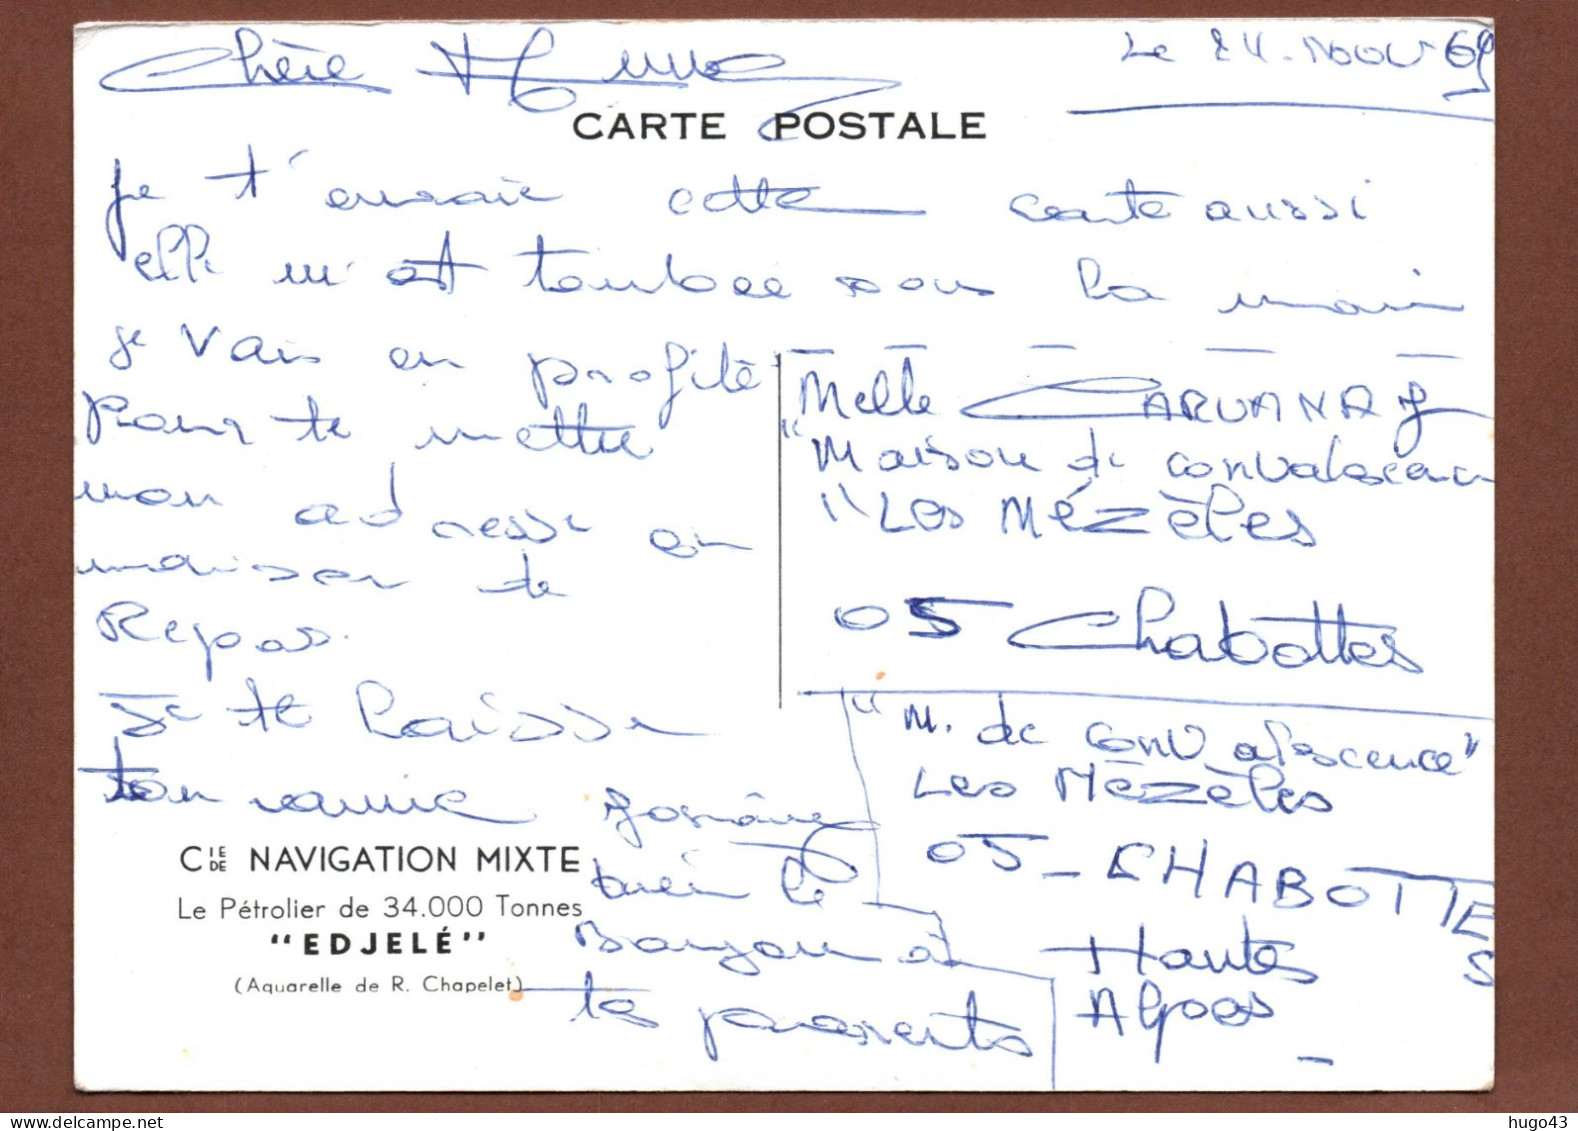 Le 24. Nov 69
Chère
CARTE POSTALE
Je t'envoie cette carte aussi
elle m'est tombée sous la main
je vais en profité
pour te mettre
mon adresse en
maison de
Repos.
Je te laisse
ton amie Josiane
bien le
Bonjour à
tes parents
Melle CARUANA J
"Maison de convalescence
"Les Mézèles
05 Chabottes
"M. de convalescence"
Les Mézèles
05 - CHABOTTES
Hautes
Alpes
CIE DE NAVIGATION MIXTE
Le Pétrolier de 34.000 Tonnes
"EDJELÉ"
(Aquarelle de R. Chapelet)
hugo43